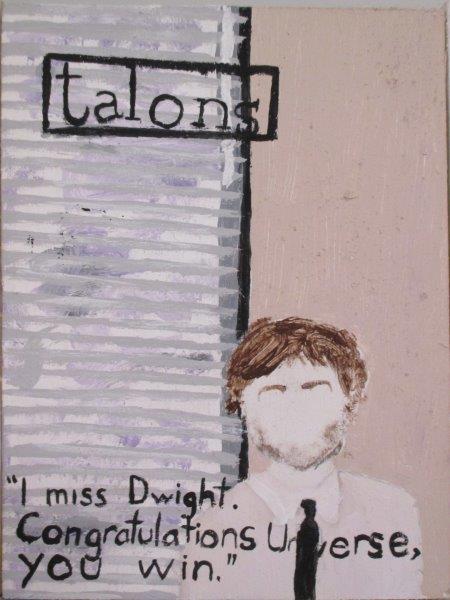 talons
"I miss Dwight.
Congratulations Universe,
you win."